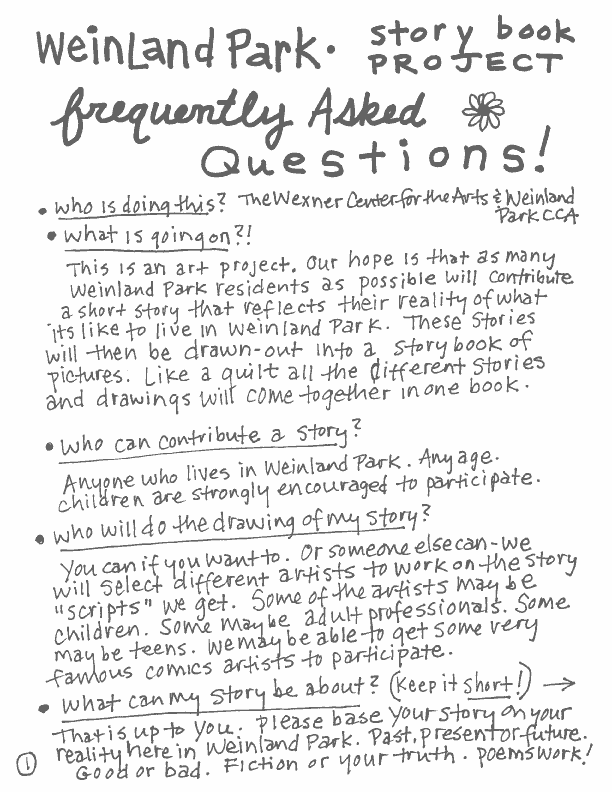 Weinland Park. Story book
PROJECT
frequently Asked
Questions!
• who is doing this? The Wexner Center for the Arts & Weinland
Park CCA
• what is going on?!
This is an art project. Our hope is that as many
Weinland Park residents as possible will contribute
a short story that reflects their reality of what
its like to live in Weinland Park. These Stories
will then be drawn-out into a story book of
pictures. Like a quilt all the different Stories
and drawings will come together in one book.
• who can contribute a story?
Anyone who lives in Weinland Park. Any age.
children are strongly encouraged to participate.
• who will do the drawing of my story?
You can if you want to. Or someone else can-we
will select different artists to work on the story
"scripts" we get. Some of the artists may be
children. Some may be adult professionals. Some
may be teens. We may be able to get some very
famous comics artists to participate.
• what can my story be about? (keep it short!) →
That is up to you. Please base your story on your
reality here in Weinland Park. Past, present or future.
Good or bad. Fiction or your truth. poems work!
1